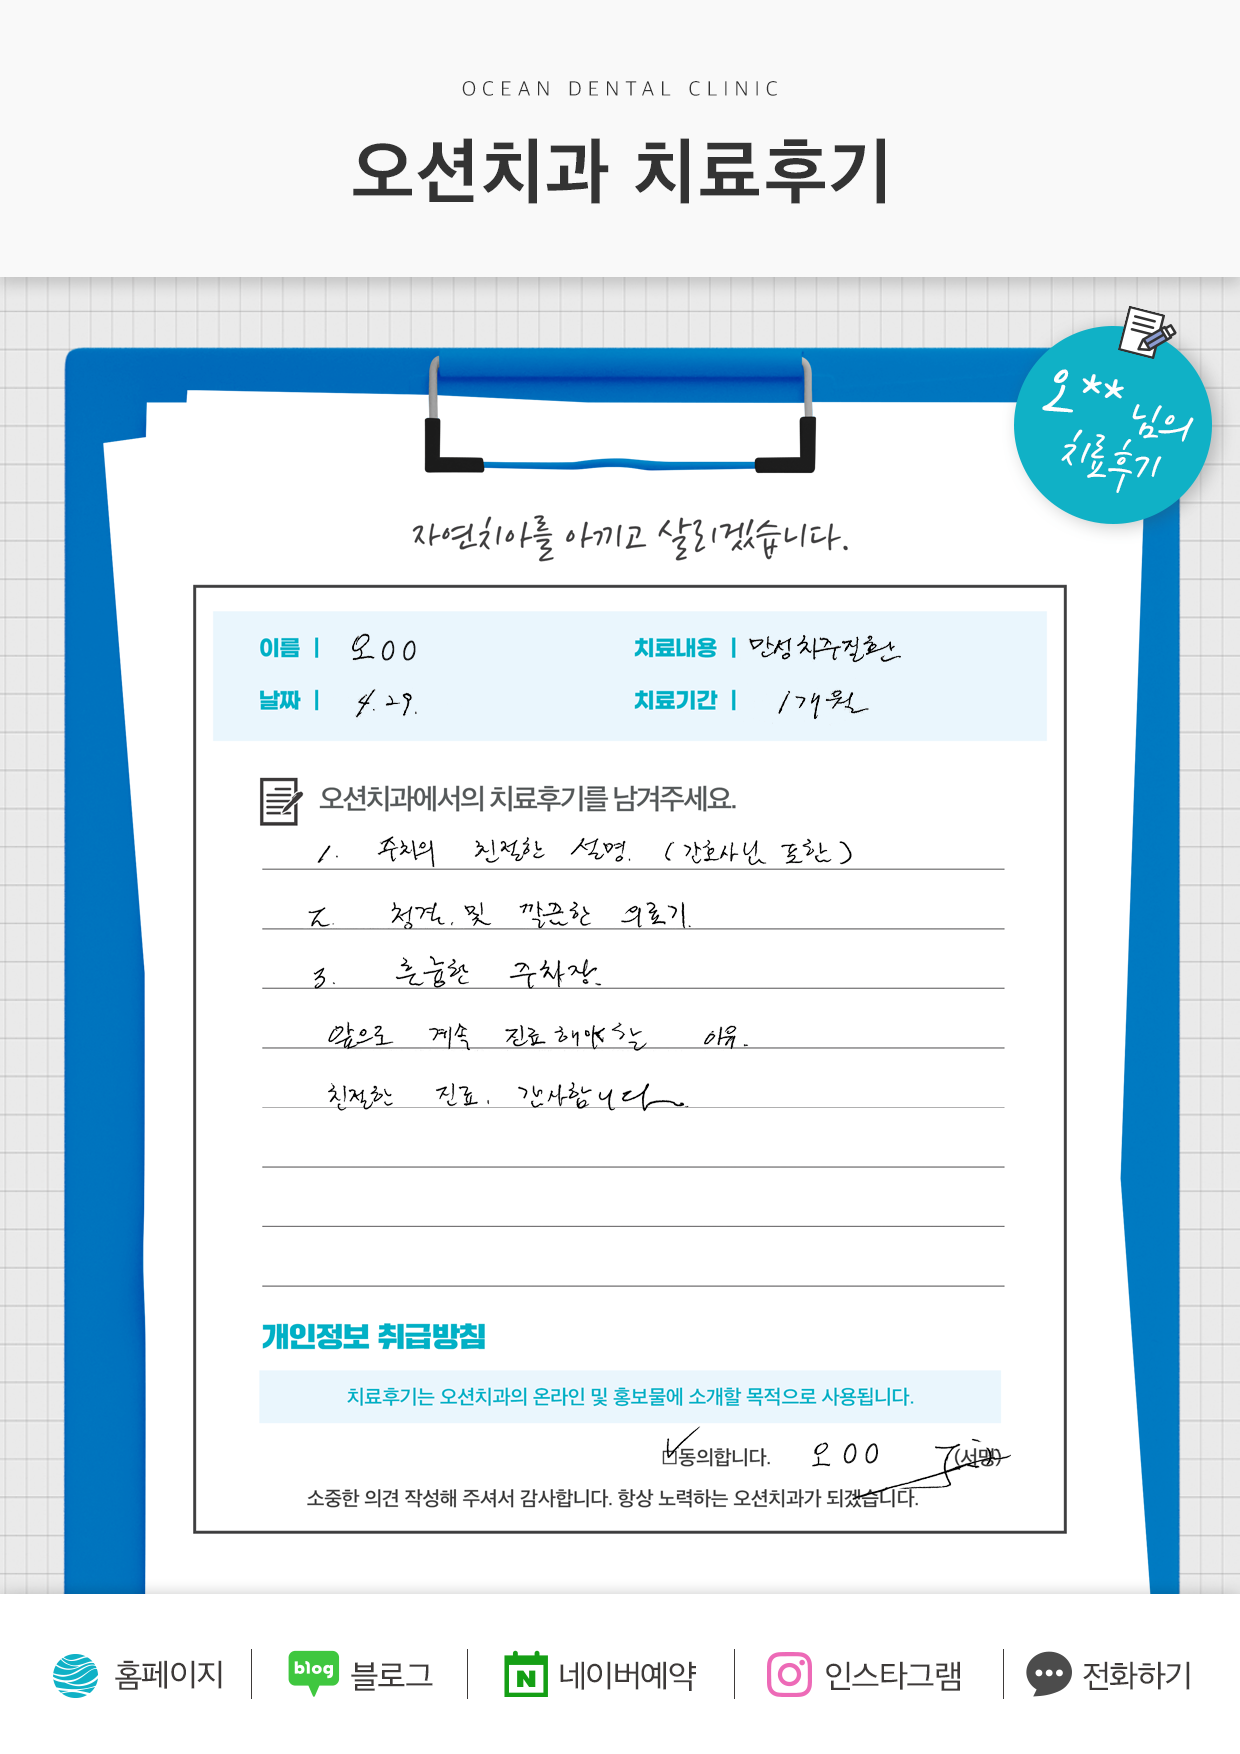 OCEAN DENTAL CLINIC
오션치과 치료후기
오** 님의
치료후기
자연치아를 아끼고 살리겠습니다.
이름 | 오OO
치료내용 | 만성치주질환
날짜 | 4. 29.
치료기간 | 1개월
오션치과에서의 치료후기를 남겨주세요.
1. 주치의 친절한 설명. (간호사님 포함)
2. 청결. 및 깔끔한 의료기.
3. 흔늠한 주차장.
앞으로 계속 진료해야 할 이유.
친절한 진료. 감사합니다.
개인정보 취급방침
치료후기는 오션치과의 온라인 및 홍보물에 소개할 목적으로 사용됩니다.
동의합니다. 오OO (서명)
소중한 의견 작성해 주셔서 감사합니다. 항상 노력하는 오션치과가 되겠습니다.
홈페이지
blog 블로그
N 네이버예약
인스타그램
전화하기